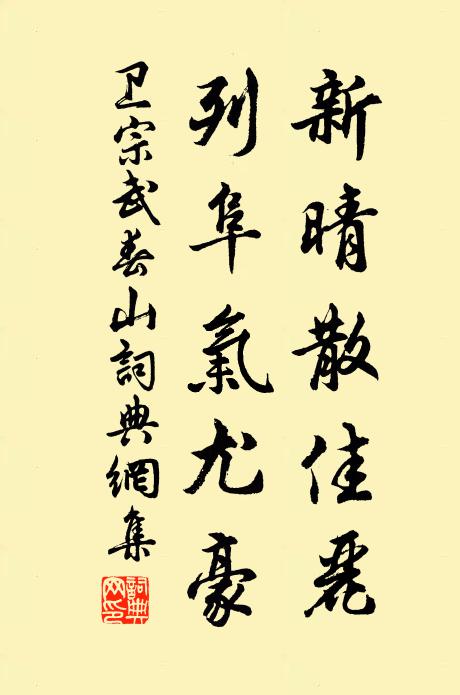 新晴散佳麗
列阜氣尤豪
卫宗武春山詞典網集
詞典网印